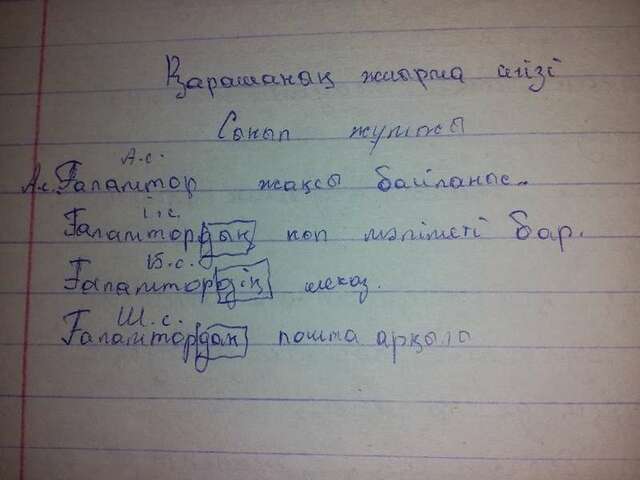 Қарашанақ жиарма сгізі
Сынып жұмысы
А.с.
А.с. Ғаламтор жақсы байланыс.
І.с.
Ғаламтордың көп мәліметі бар.
Б.с.
Ғаламтордің
Ш.с.
Ғаламтордан пошта арқыло